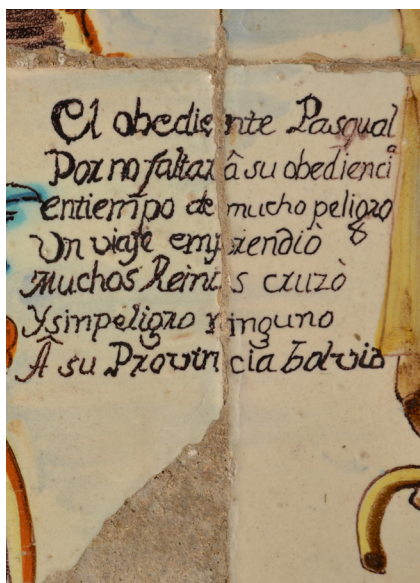 El obediente Pasqual
Por no faltar â su obediencia
entiempo de mucho peligro
Un viaje emprendiò
Muchos Reinos cruzò
Ysinpeligro ninguno
Â su Provincia bolvio